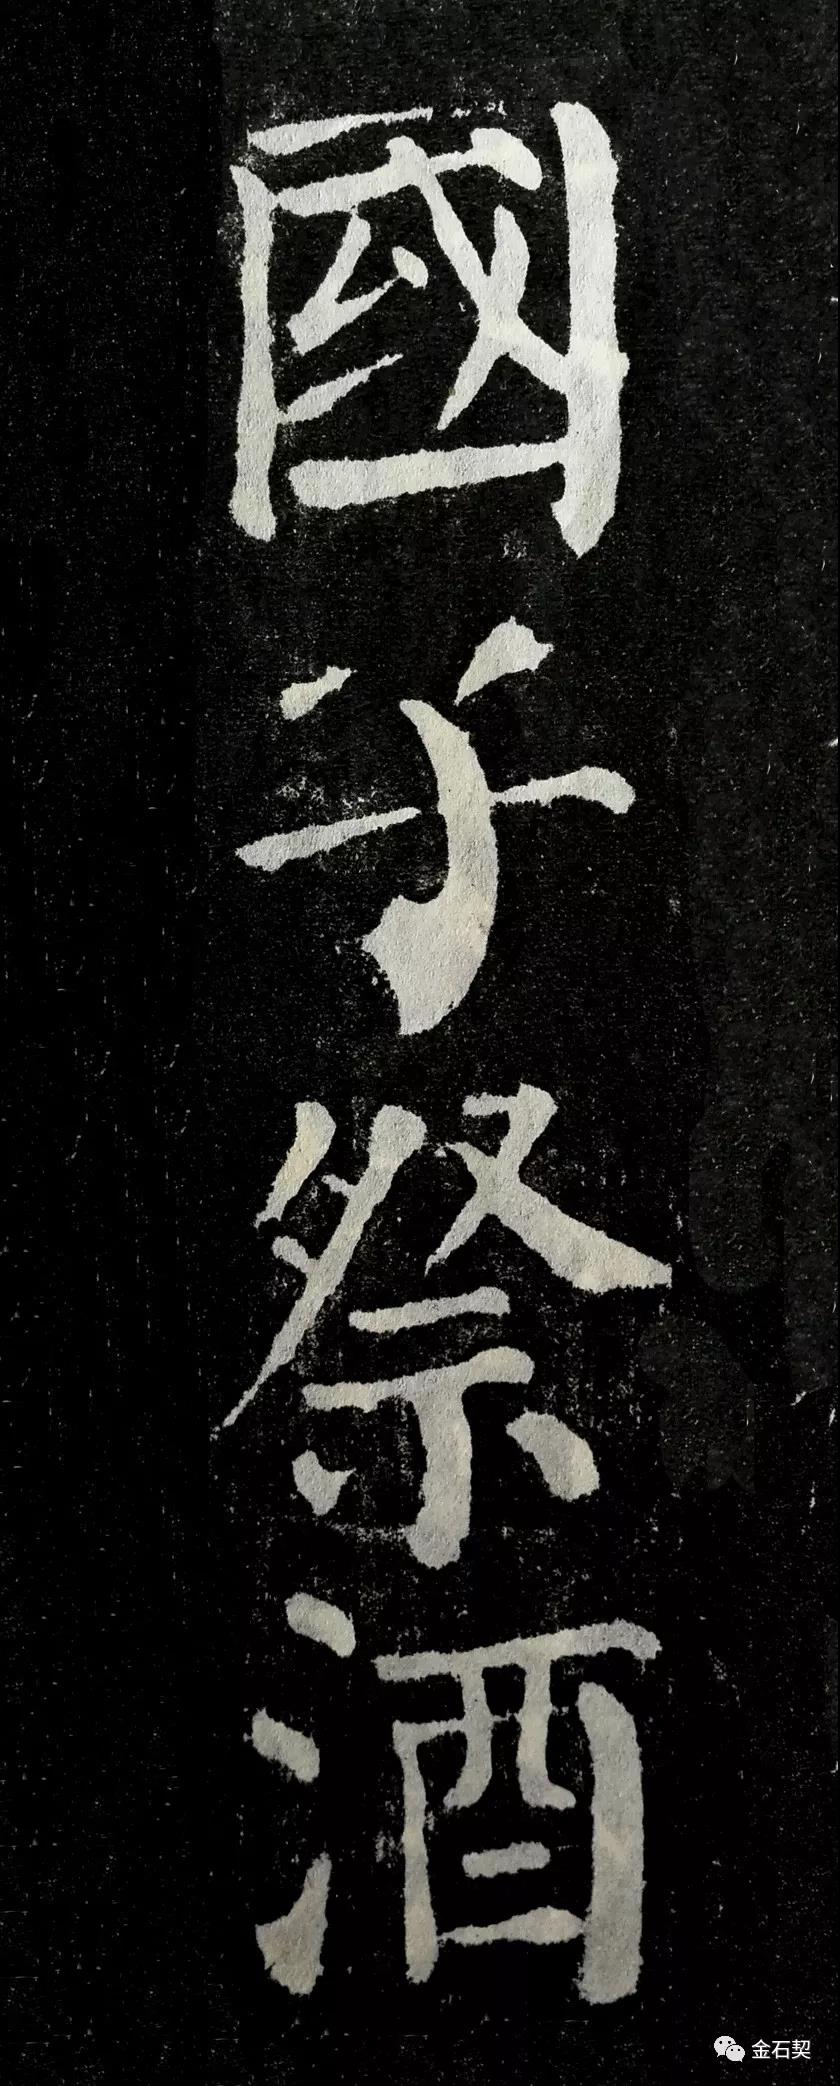 國子祭酒
金石契